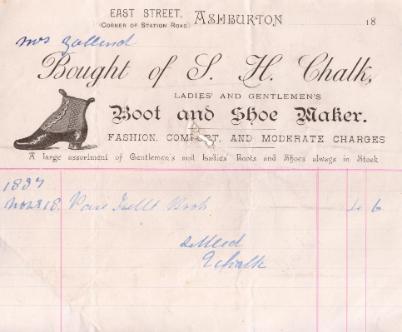 EAST STREET,
(CORNER OF STATION ROAD)
ASHBURTON
18
Mrs
Bought of S. H. Chalk,
LADIES' AND GENTLEMEN'S
Boot and Shoe Maker.
FASHION, COMFORT, AND MODERATE CHARGES
A large assortment of Gentlemen's and Ladies' Boots and Shoes always in Stock
1897
Pair
4 6
Chalk